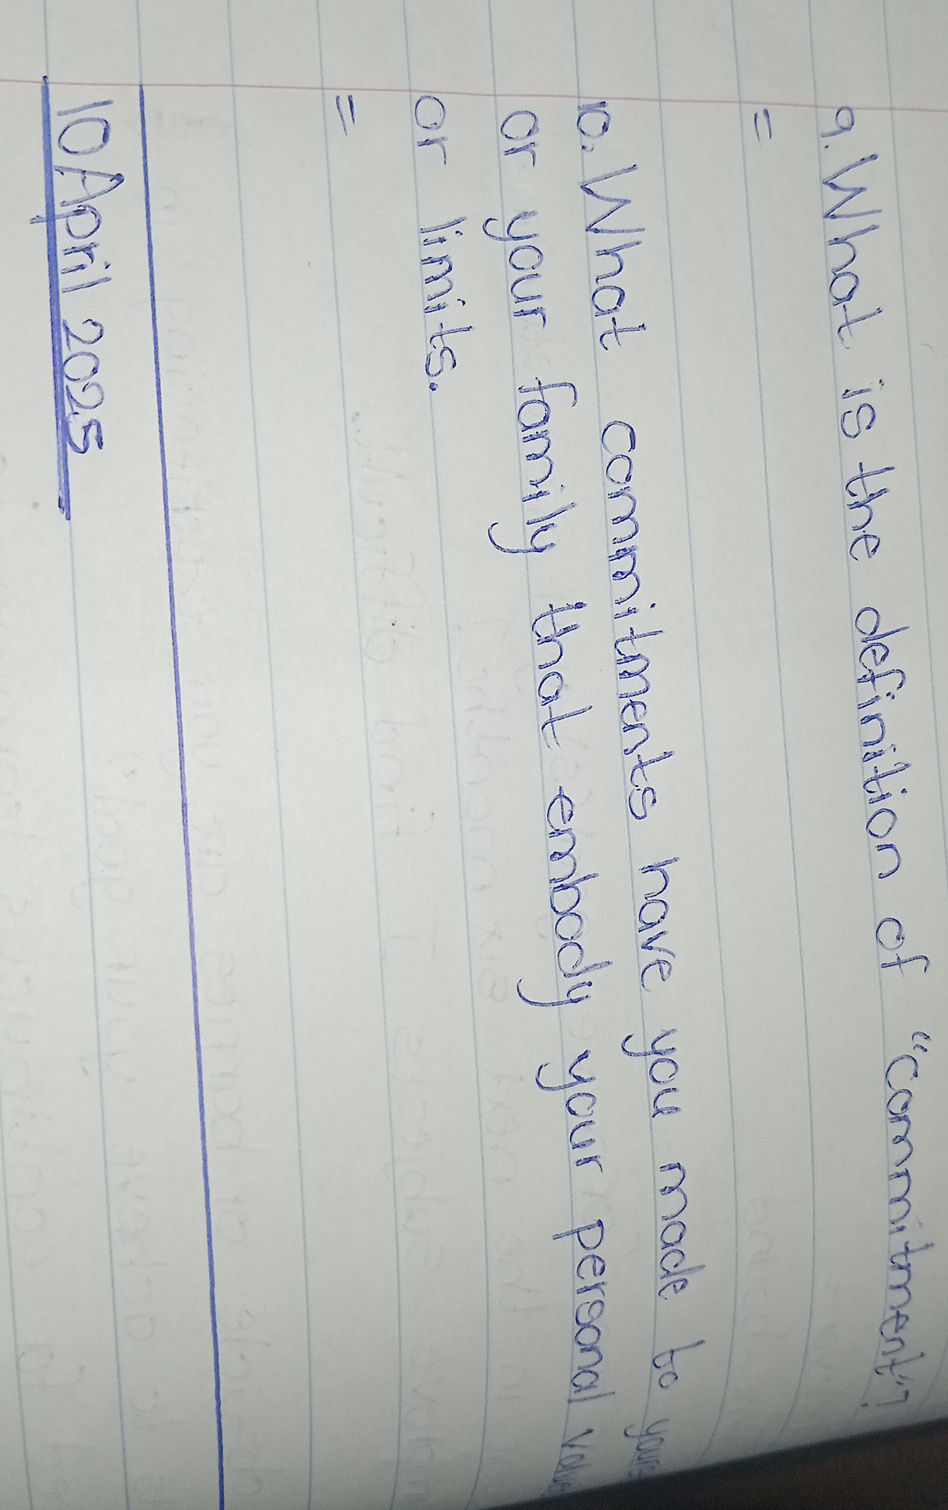 9. What is the definition of "commitment"?
=
10. What commitments have you made to
or your family that embody your personal
or limits.
=
10 April 2025